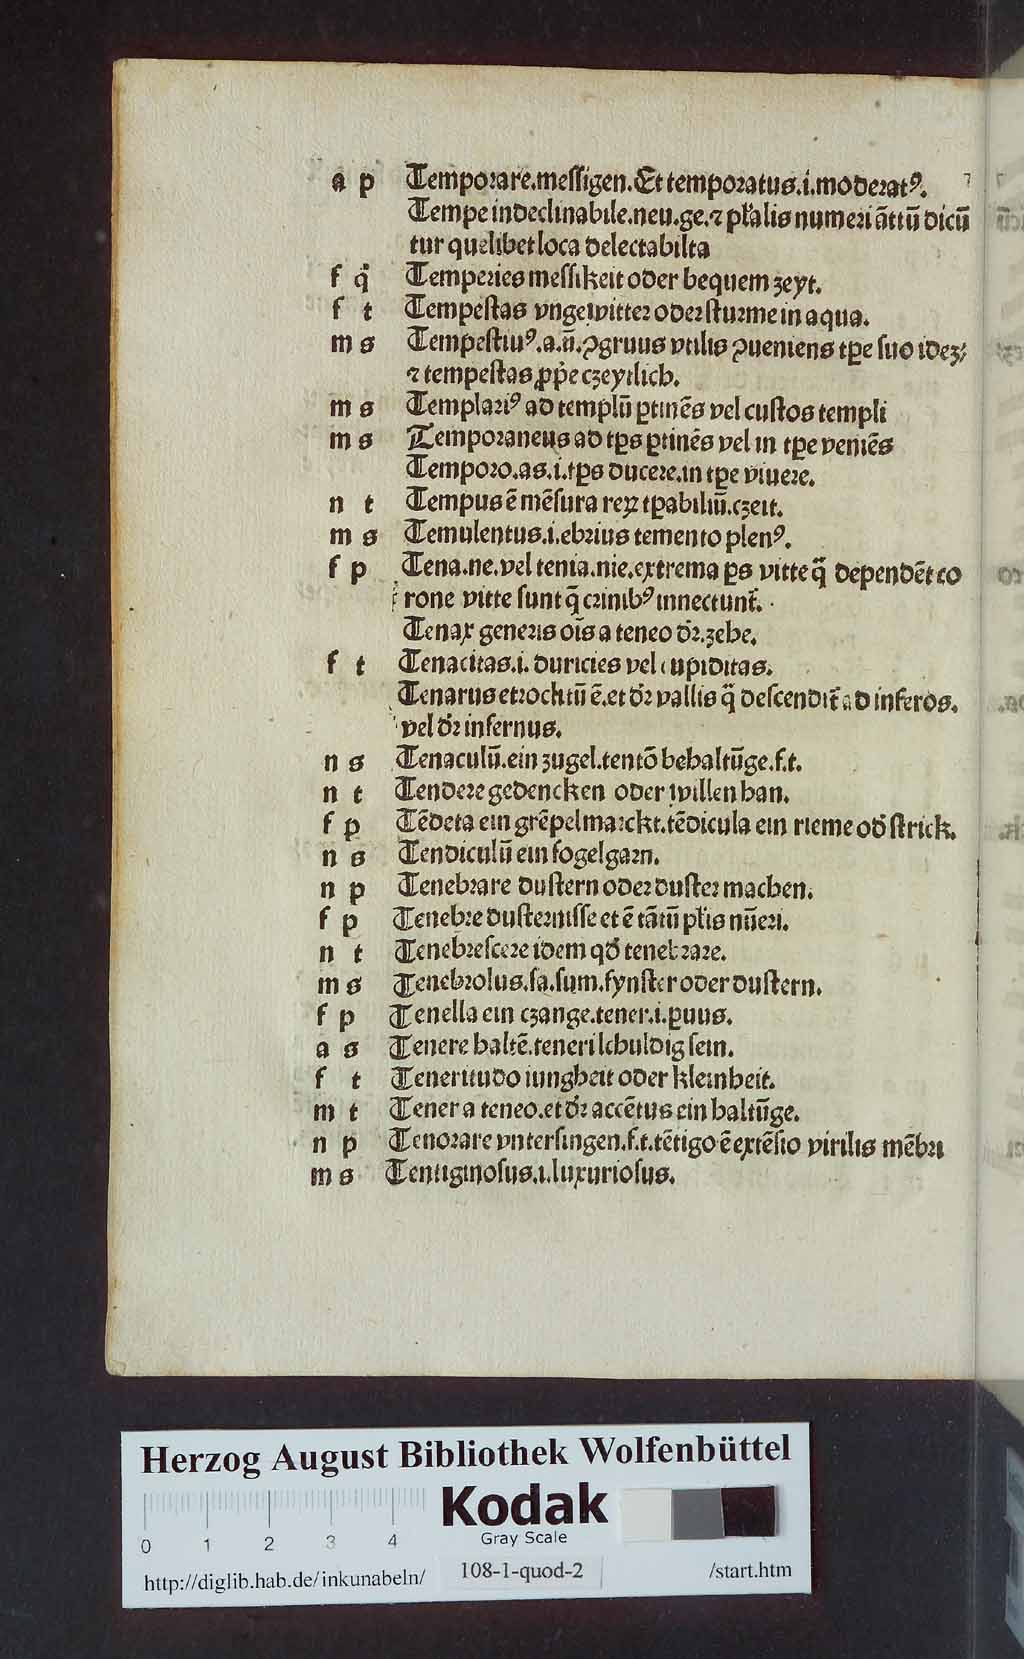 a p Temporare.messigen.Et temporatus.i.moderatꝰ.
Tempe indeclinabile.neu.ge.⁊ pľalis numeri ãttũ dicũ
tur quelibet loca delectabilia
f q̃ Temperies messikeit oder bequem zeyt.
f t Tempestas vngewitter oder sturme in aqua.
m s Tempestiuꝰ.a.ũ.ꝯgruus vtilis ꝯueniens tꝑe suo idez;
⁊ tempestas ꝓpͥe czeytlich.
m s Templariꝰ ad templũ ꝑtinẽs vel custos templi
m s Temporaneus ad tꝑs ꝑtinẽs vel in tꝑe veniẽs
Temporo.as.i.tꝑs ducere.in tꝑe viuere.
n t Tempus ẽ mẽsura reꝝ tꝑabiliũ.czeit.
m s Temulentus.i.ebrius temento plenꝰ.
f p Tena.ne.vel tenia.nie.extrema ꝑs vitte q̃ dependẽt co
rone vitte sunt q̃ crinibꝰ innectunt̃.
Tenax generis oĩs a teneo dr̃.zehe.
f t Tenacitas.i.duricies vel cupiditas.
Tenarus etrochtũ ẽ.et dr̃ vallis q̃ descendit̃ ad inferos.
vel dr̃ infernus.
n s Tenaculũ.ein zugel.tentõ behaltũge.f.t.
n t Tendere gedencken oder willen han.
f p Tẽdeta ein grẽpelmarckt.tẽdicula ein rieme od̃ strick.
n s Tendiculũ ein fogelgarn.
n p Tenebrare dustern oder duster machen.
f p Tenebre dusternisse et ẽ tãtũ pľis nũeri.
n t Tenebrescere idem qd̃ tenebrare.
m s Tenebrolus.sa.sum.fynster oder dustern.
f p Tenella ein czange.tener.i.ꝑuus.
a s Tenere haltẽ.teneri schuldig sein.
f t Teneritudo iungheit oder kleinheit.
m t Tener a teneo.et dr̃ accẽtus ein haltũge.
n p Tenorare vntersingen.f.t.tẽtigo ẽ extẽsio virilis mẽbri
m s Tentiginosus.i.luxuriosus.
Herzog August Bibliothek Wolfenbüttel
Kodak
Gray Scale
0 1 2 3 4
http://diglib.hab.de/inkunabeln/ 108-1-quod-2 /start.htm